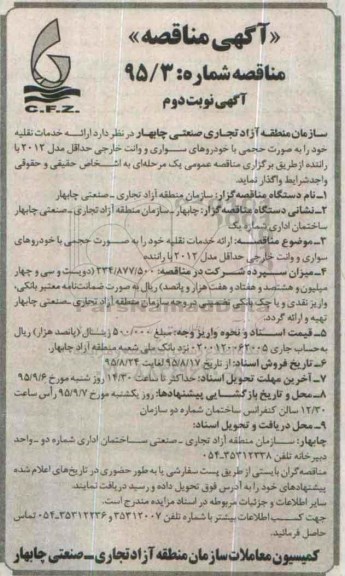 «آگهی مناقصه»
مناقصه شماره: ۹۵/۳
آگهی نوبت دوم
C.F.Z.
سازمان منطقه آزاد تجاری صنعتی چابهار در نظر دارد ارائه خدمات نقلیه
خود را به صورت حجمی با خودروهای سواری و وانت خارجی حداقل مدل ۲۰۱۲ با
راننده از طریق برگزاری مناقصه عمومی یک مرحله‌ای به اشخاص حقیقی و حقوقی
واجد شرایط واگذار نماید.
۱-نام دستگاه مناقصه گزار: سازمان منطقه آزاد تجاری -صنعتی چابهار
۲-نشانی دستگاه مناقصه گزار: چابهار -سازمان منطقه آزاد تجاری -صنعتی چابهار
ساختمان اداری شماره یک
۳-موضوع مناقصه: ارائه خدمات نقلیه خود را به صورت حجمی با خودروهای
سواری و وانت خارجی حداقل مدل ۲۰۱۲ با راننده
۴-میزان سپرده شرکت در مناقصه: ۲۳۴/۸۷۷/۵۰۰ (دویست و سی و چهار
میلیون و هشتصد و هفتاد و هفت هزار و پانصد) ریال به صورت ضمانت‌نامه معتبر بانکی،
واریز نقدی و یا چک بانکی تضمینی در وجه سازمان منطقه آزاد تجاری -صنعتی چابهار
تهیه و ارائه گردد.
۵-قیمت اسناد و نحوه واریز وجه: مبلغ ۵۰۰/۰۰۰ (پانصد هزار) ریال
به حساب جاری ۰۲۰۰۱۲۰۰۶۲۰۰۵ نزد بانک ملی شعبه منطقه آزاد چابهار.
۶-تاریخ فروش اسناد: از تاریخ ۹۵/۸/۱۷ لغایت ۹۵/۸/۲۴
۷-آخرین مهلت تحویل اسناد: حداکثر تا ساعت ۱۴/۳۰ روز شنبه مورخ ۹۵/۹/۶
۸-محل و تاریخ بازگشایی پیشنهادها: روز یکشنبه مورخ ۹۵/۹/۷ رأس ساعت
۱۲/۳۰ سالن کنفرانس ساختمان شماره دو سازمان
۹-محل دریافت و تحویل اسناد:
چابهار: سازمان منطقه آزاد تجاری -صنعتی ساختمان اداری شماره دو -واحد
دبیرخانه تلفن ۳۵۳۱۲۳۳۸-۰۵۴
مناقصه گران بایستی از طریق پست سفارشی یا به طور حضوری در تاریخ‌های اعلام شده
پیشنهادهای خود را به آدرس فوق تحویل داده و رسید دریافت نمایند.
سایر اطلاعات و جزئیات مربوطه در اسناد مزایده مندرج است.
جهت کسب اطلاعات بیشتر با شماره تلفن ۳۵۳۱۲۰۰۷ و ۳۵۳۱۲۲۳۶-۰۵۴ تماس
حاصل فرمائید.
کمیسیون معاملات سازمان منطقه آزاد تجاری -صنعتی چابهار